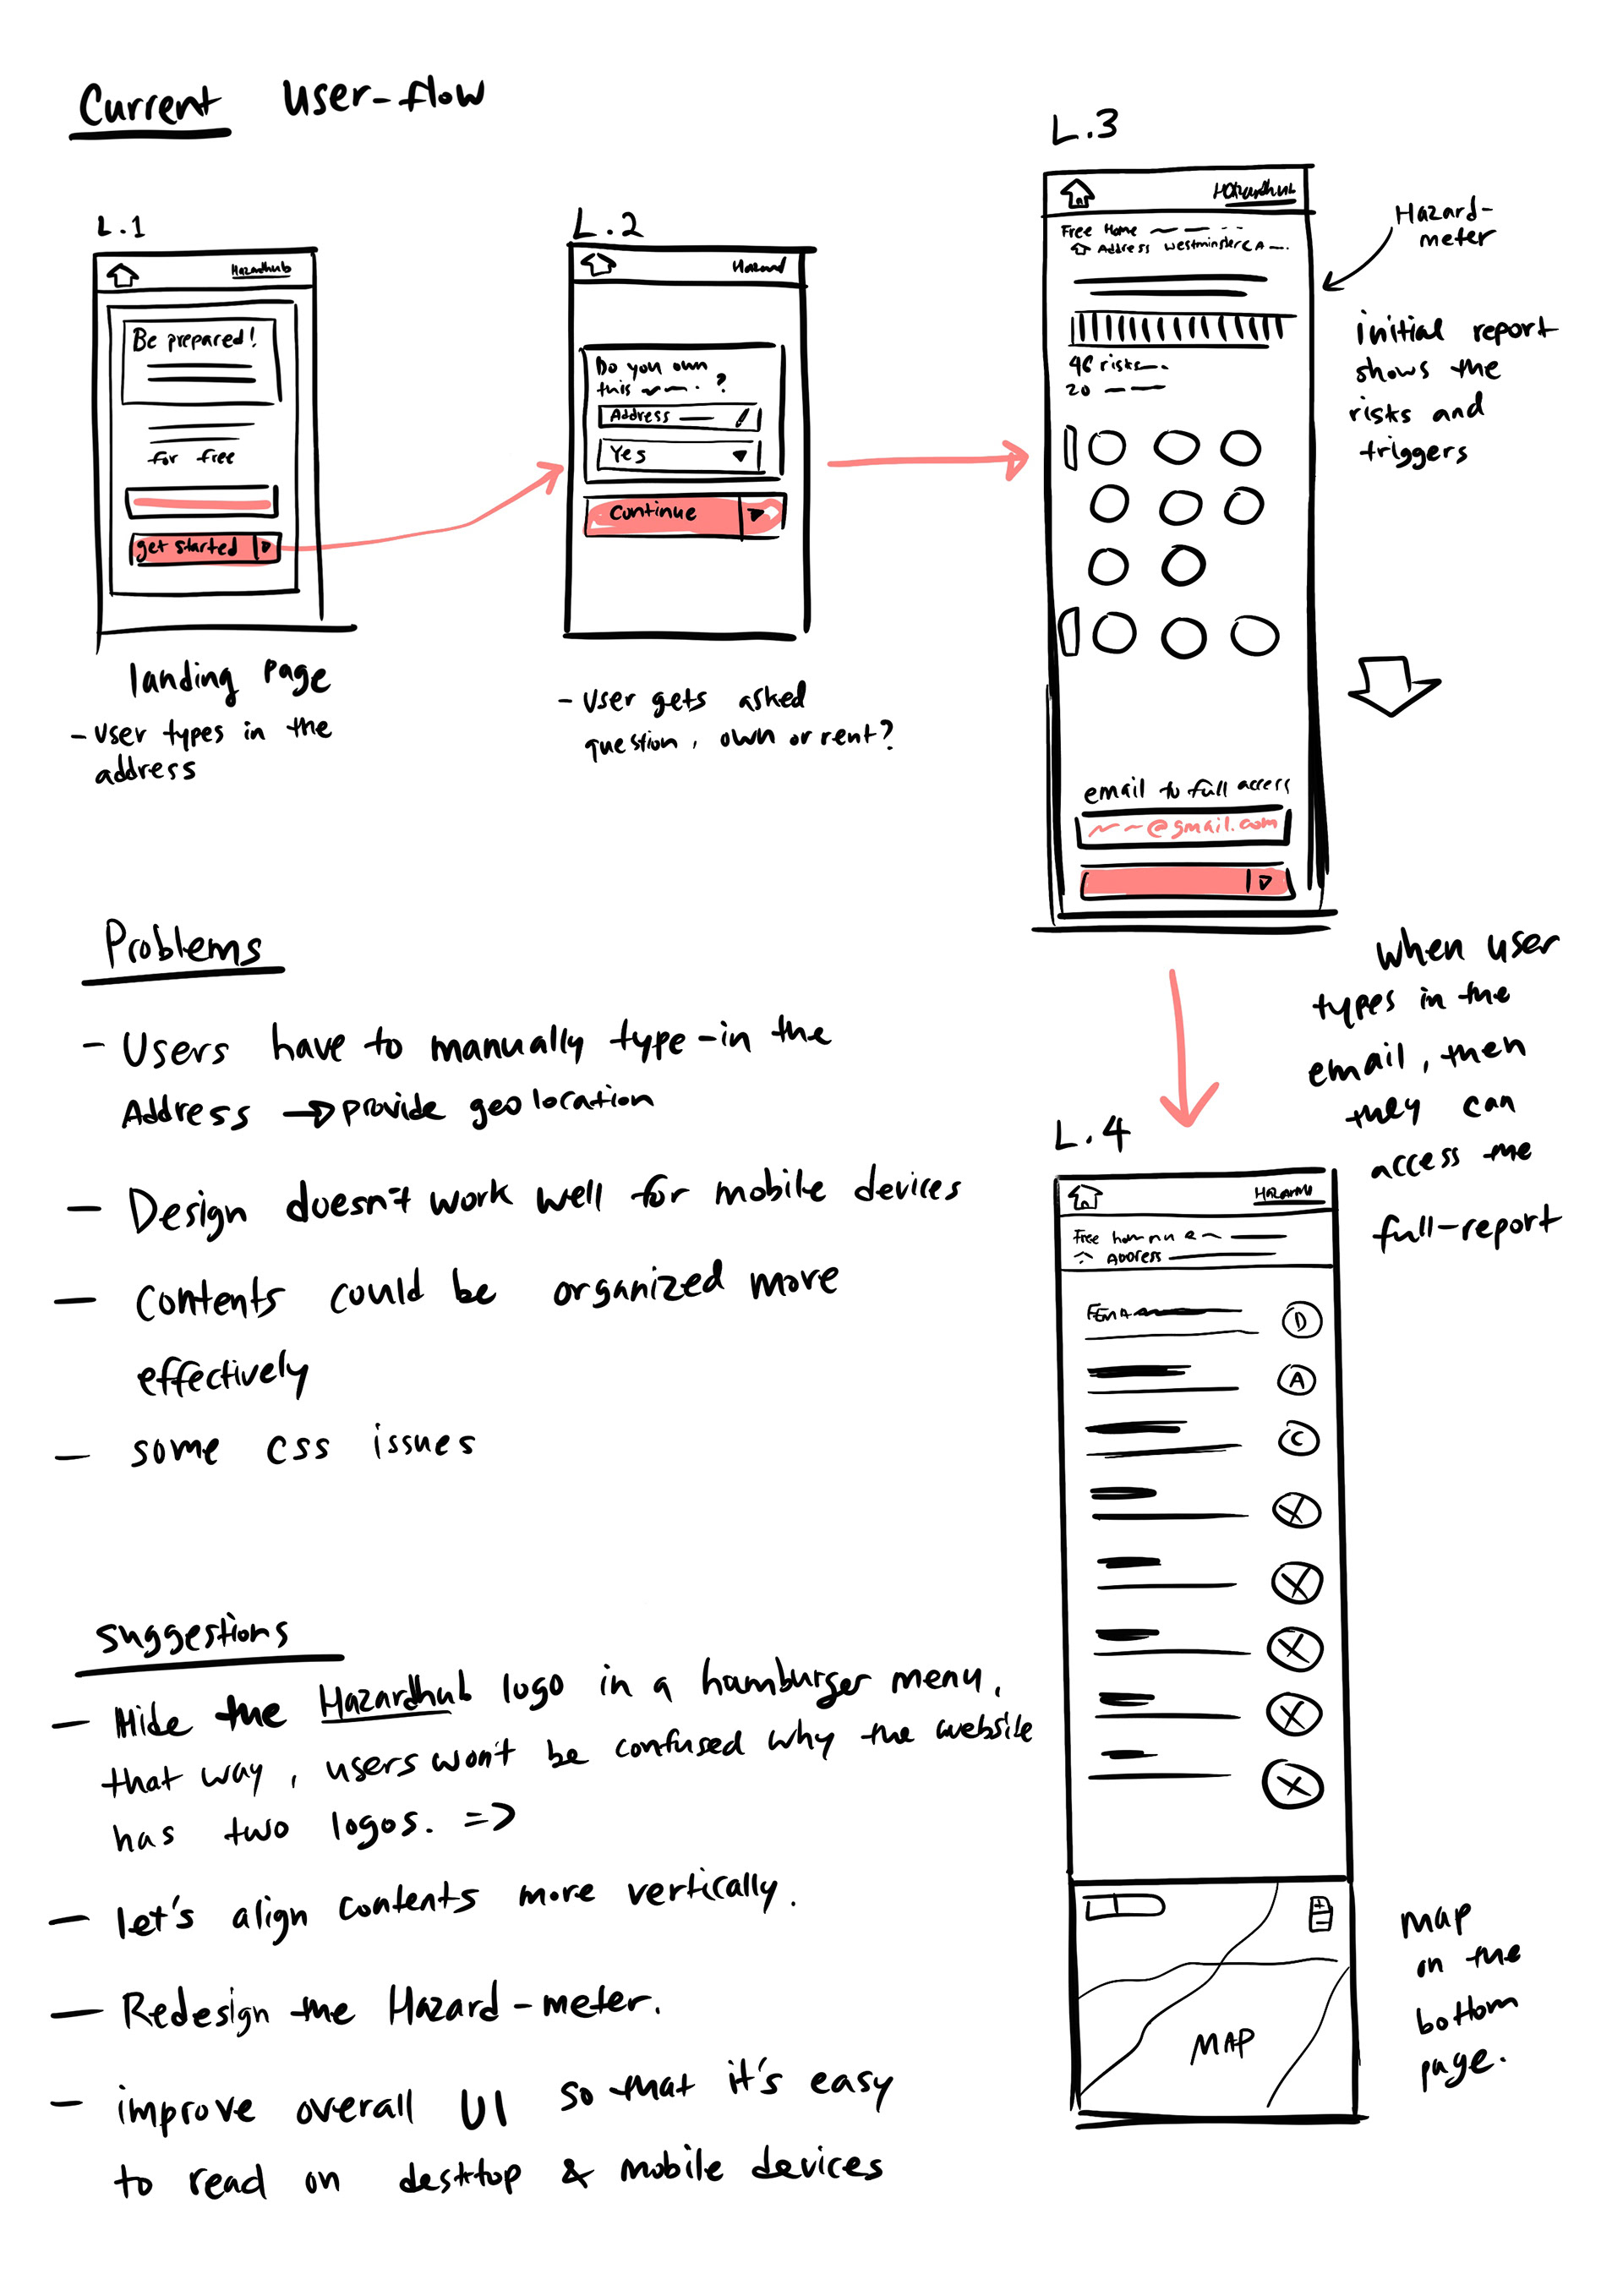 Current user-flow
L.1
Hazardhub
Be prepared!
for free
get started
landing page
- User types in the
address
L.2
Hazard
Do you own
this ?
Address
Yes
Continue
- User gets asked
question, own or rent?
L.3
Hazardhub
Free Home
Address Westminster CA
46 risks
20
email to full access
@gmail.com
Hazard-
meter
initial report
shows the
risks and
triggers
when user
types in the
email, then
they can
access the
full-report
L.4
Free
Address
D
A
C
MAP
map
on the
bottom
page.
Problems
- Users have to manually type-in the
Address → provide geolocation
- Design doesn't work well for mobile devices
- Contents could be organized more
effectively
- some css issues
Suggestions
- Hide the Hazardhub logo in a hamburger menu,
that way, users won't be confused why the website
has two logos. =>
- let's align contents more vertically.
- Redesign the Hazard-meter.
- improve overall UI so that it's easy
to read on desktop & mobile devices